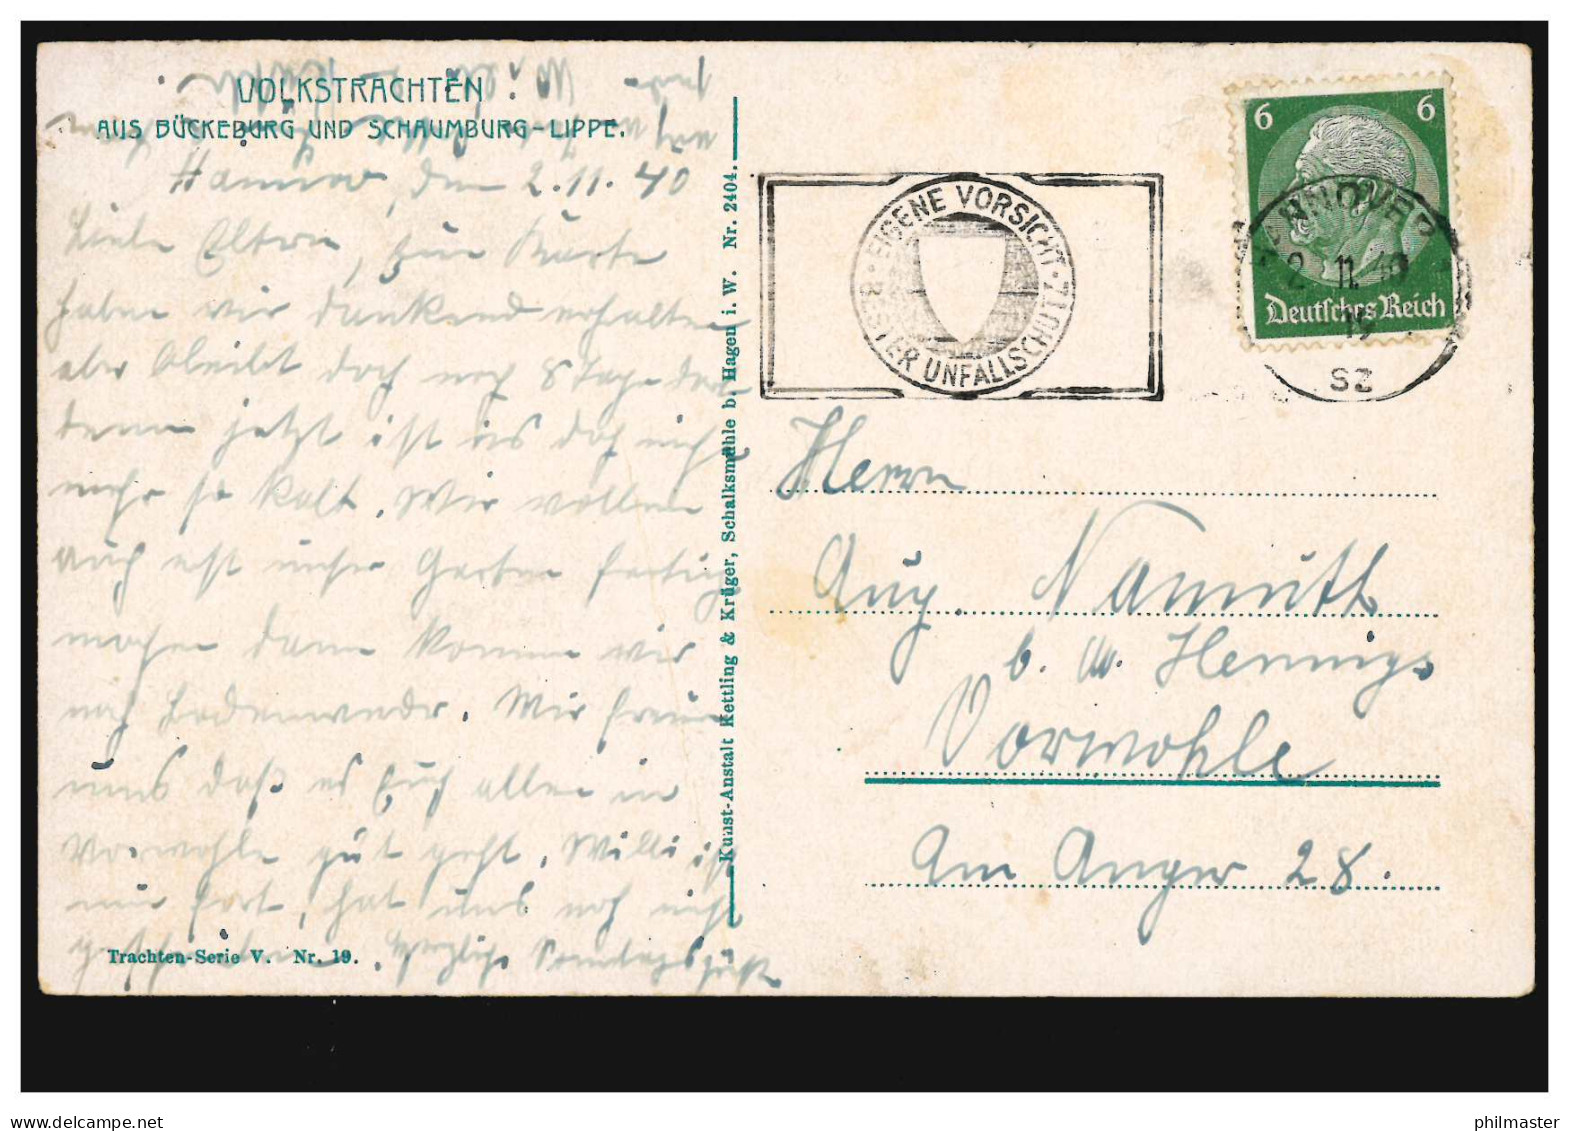 VOLKSTRACHTEN
AUS BÜCKEBURG UND SCHAUMBURG-LIPPE.
Hannover, den 2.11.40
Liebe Eltern, Eure Karte
haben wir dankend erhalten
aber bleibt doch noch 8 Tage dort
denn jetzt ist es doch nicht
mehr so kalt. Wir wollen
auch erst unser Garten fertig
machen dann kommen wir
nach Bodenwerder. Wir freuen
uns daß es Euch allen in
Vorwohle gut geht. Willi ist
nun fort, hat uns noch nicht
geschrieben. Herzliche Sonntagsgrüße
Trachten-Serie V. Nr. 19.
Kunst-Anstalt Kettling & Krüger, Schalksmühle b. Hagen i. W. Nr. 2404.
EIGENE VORSICHT · BESTER UNFALLSCHUTZ ·
6 6
Deutsches Reich
HANNOVER
2.11.40
SZ
Herrn
Aug. Namuth
b. W. Hennigs
Vorwohle
Am Anger 28.
philmaster